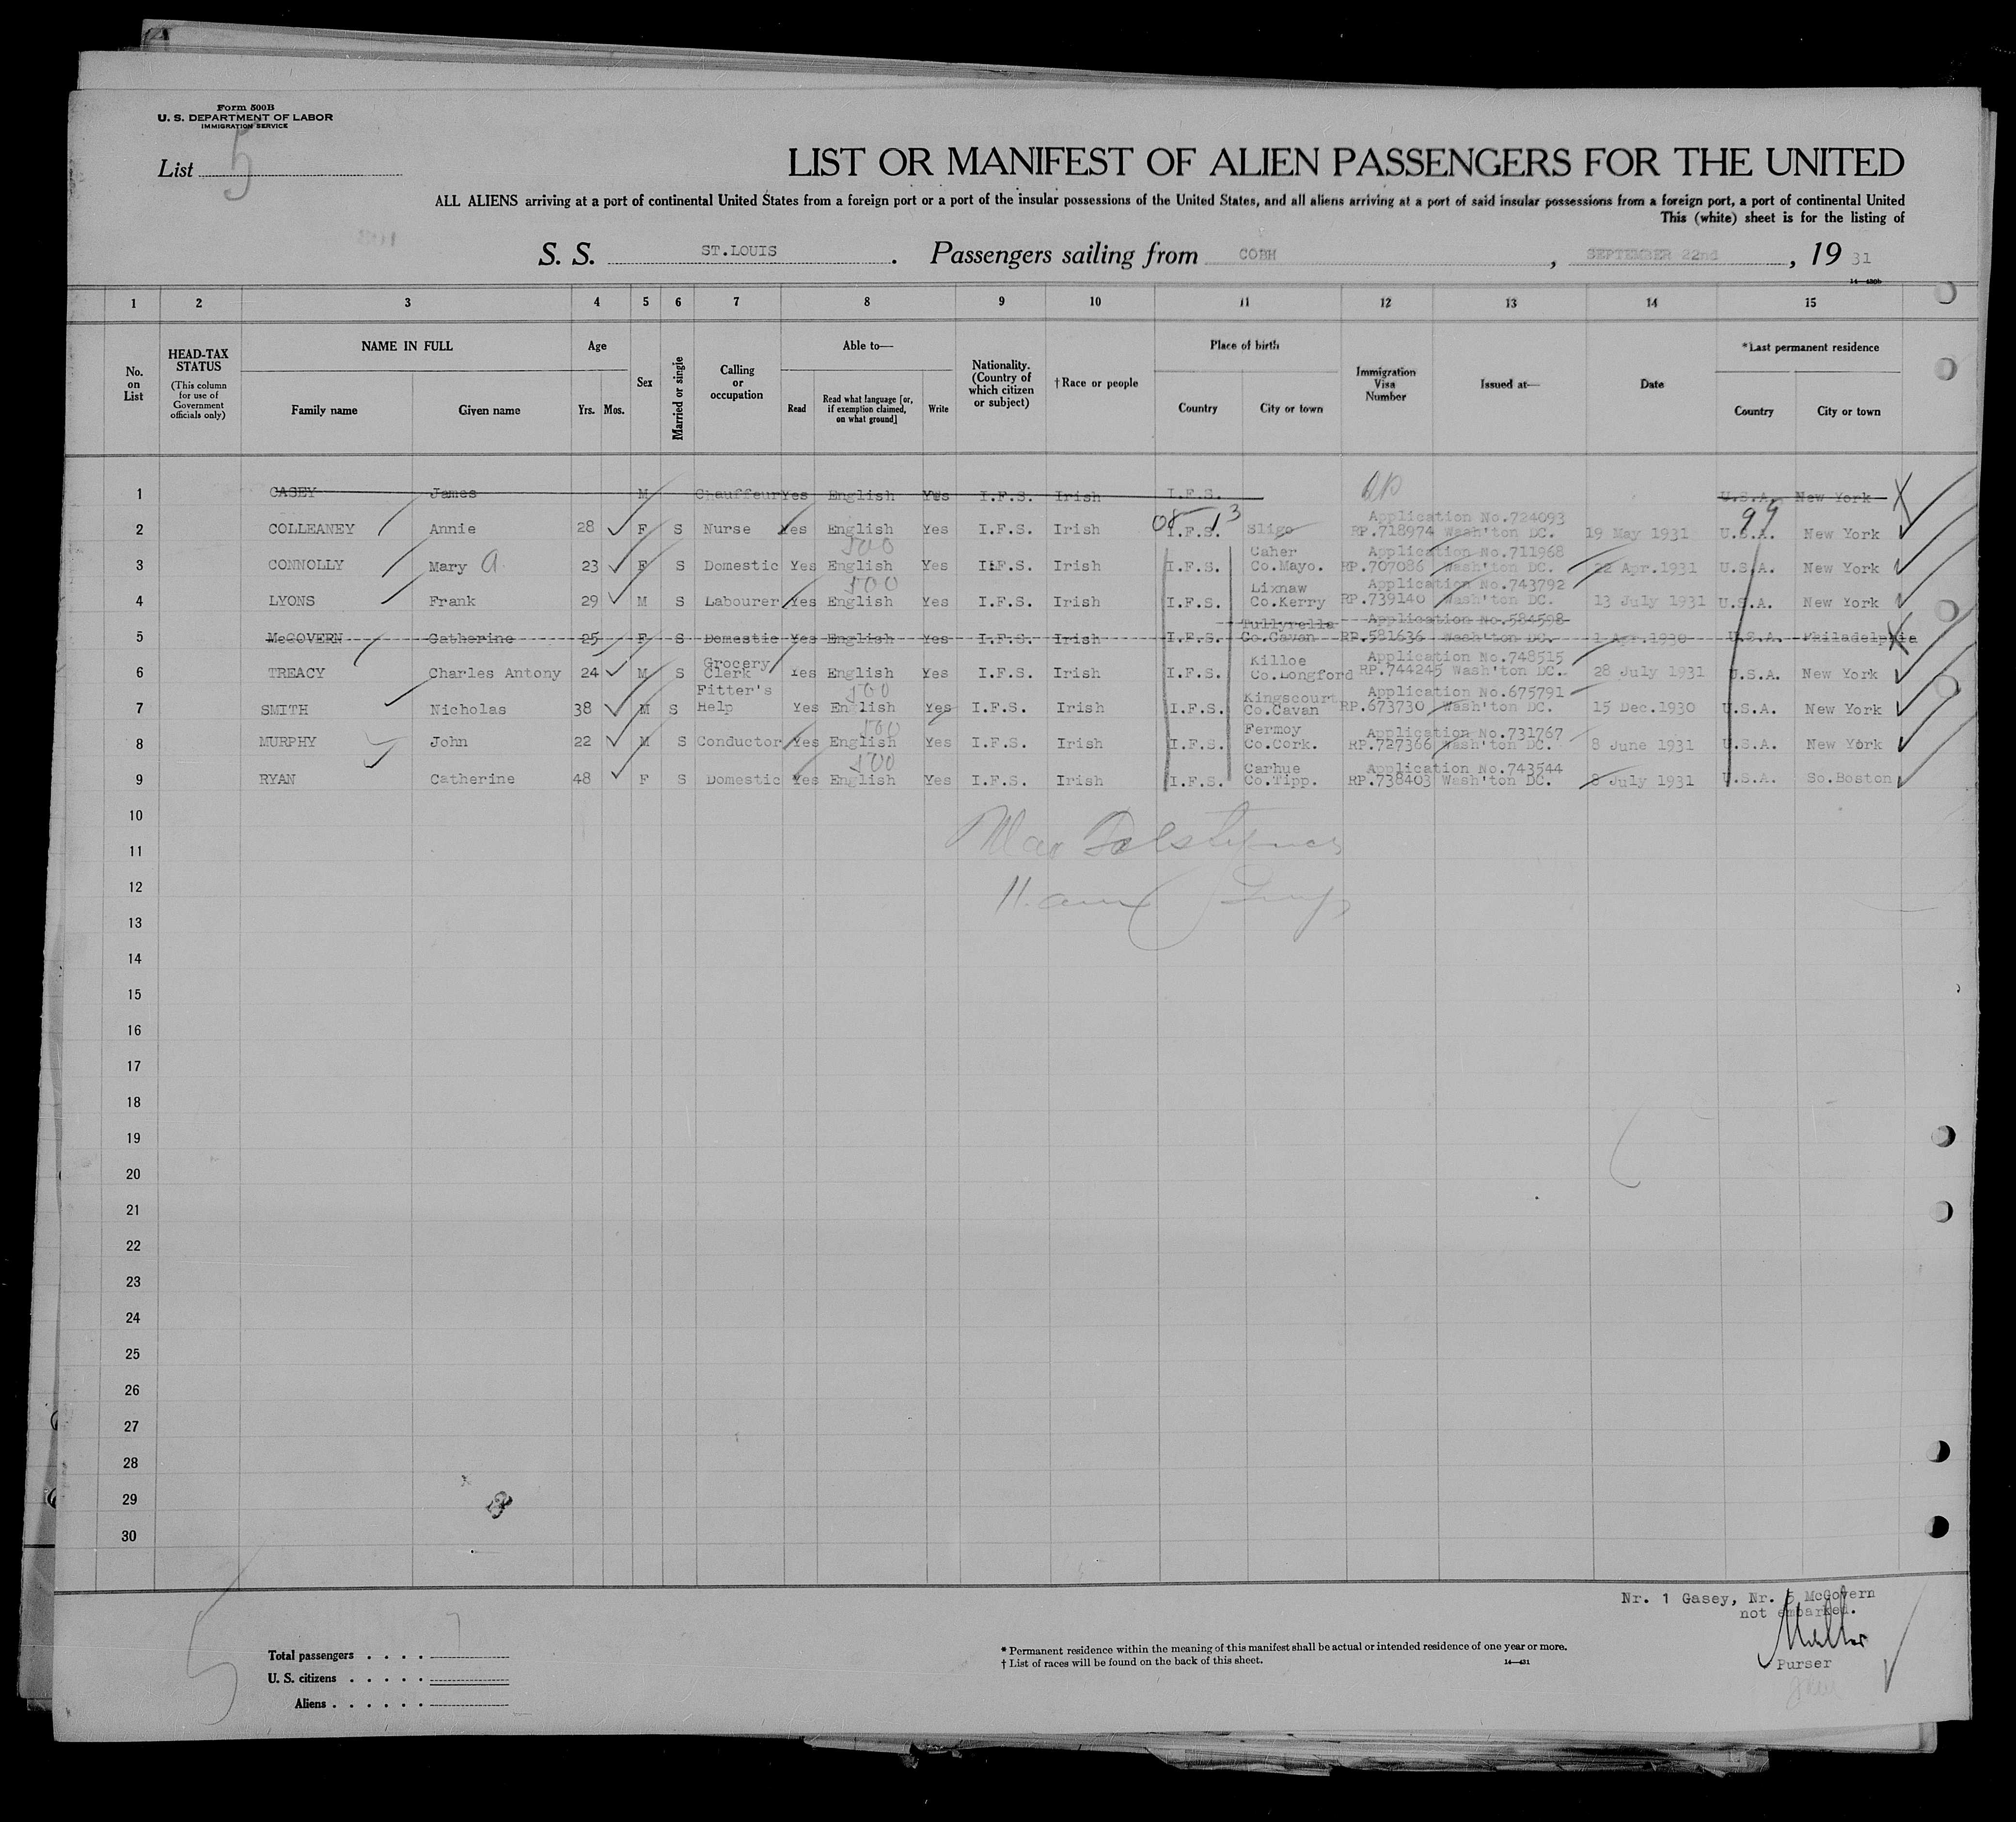 Form 500B
U. S. DEPARTMENT OF LABOR
IMMIGRATION SERVICE
List 5
LIST OR MANIFEST OF ALIEN PASSENGERS FOR THE UNITED
ALL ALIENS arriving at a port of continental United States from a foreign port or a port of the insular possessions of the United States, and all aliens arriving at a port of said insular possessions from a foreign port, a port of continental United
This (white) sheet is for the listing of
S. S. ST.LOUIS. Passengers sailing from COBH, SEPTEMBER 22nd, 19 31
14—430b
1 2 3 4 5 6 7 8 9 10 11 12 13 14 15
No. on List
HEAD-TAX STATUS (This column for use of Government officials only)
NAME IN FULL
Family name Given name
Age
Yrs. Mos.
Sex
Married or single
Calling or occupation
Able to—
Read
Read what language [or, if exemption claimed, on what ground]
Write
Nationality. (Country of which citizen or subject)
†Race or people
Place of birth
Country City or town
Immigration Visa Number
Issued at—
Date
*Last permanent residence
Country City or town
1 CASEY James M Chauffeur Yes English Yes I.F.S. Irish I.F.S. U.S.A. New York X
08 13 99
Application No.724093
2 COLLEANEY Annie 28 F S Nurse Yes English Yes I.F.S. Irish I.F.S. Sligo RP.718974 Wash'ton DC. 19 May 1931 U.S.A. New York
500
Caher Application No.711968
3 CONNOLLY Mary A. 23 F S Domestic Yes English Yes I.F.S. Irish I.F.S. Co.Mayo. RP.707086 Wash'ton DC. 22 Apr.1931 U.S.A. New York
500
Lixnaw Application No.743792
4 LYONS Frank 29 M S Labourer Yes English Yes I.F.S. Irish I.F.S. Co.Kerry RP.739140 Wash'ton DC. 13 July 1931 U.S.A. New York
Tullyrella Application No.584598
5 McGOVERN Catherine 25 F S Domestic Yes English Yes I.F.S. Irish I.F.S. Co.Cavan RP.581636 Wash'ton DC. 1 Apr.1930 U.S.A. Philadelphia X
Grocery Killoe Application No.748515
6 TREACY Charles Antony 24 M S Clerk Yes English Yes I.F.S. Irish I.F.S. Co.Longford RP.744245 Wash'ton DC. 28 July 1931 U.S.A. New York
Fitter's 500 Kingscourt Application No.675791
7 SMITH Nicholas 38 M S Help Yes English Yes I.F.S. Irish I.F.S. Co.Cavan RP.673730 Wash'ton DC. 15 Dec.1930 U.S.A. New York
500 Fermoy Application No.731767
8 MURPHY John 22 M S Conductor Yes English Yes I.F.S. Irish I.F.S. Co.Cork. RP.727366 Wash'ton DC. 8 June 1931 U.S.A. New York
500 Carhue Application No.743544
9 RYAN Catherine 48 F S Domestic Yes English Yes I.F.S. Irish I.F.S. Co.Tipp. RP.738403 Wash'ton DC. 8 July 1931 U.S.A. So.Boston
10
11
12
13
14
15
16
17
18
19
20
21
22
23
24
25
26
27
28
29
30
Nr. 1 Gasey, Nr. 5 McGovern
not embarked.
Purser
7
Total passengers
U. S. citizens
Aliens
5
* Permanent residence within the meaning of this manifest shall be actual or intended residence of one year or more.
† List of races will be found on the back of this sheet.
14—431